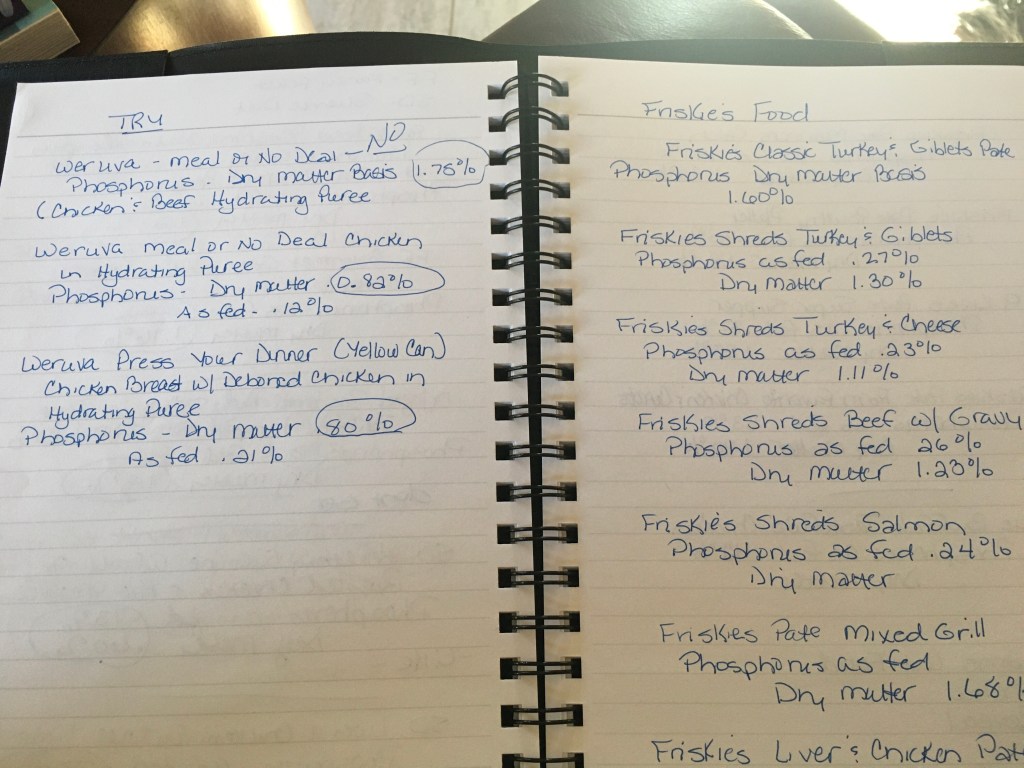 TRY
Weruva - meal or No Deal - NO
Phosphorus - Dry matter Basis 1.75%
(Chicken & Beef Hydrating Puree
Weruva meal or No Deal Chicken
in Hydrating Puree
Phosphorus - Dry matter . 0.82%
As fed - .12%
Weruva Press Your Dinner (Yellow Can)
Chicken Breast w/ Deboned Chicken in
Hydrating Puree
Phosphorus - Dry matter .80%
As fed .21%
Friskie's Food
Friskies Classic Turkey & Giblets Pate
Phosphorus Dry matter Basis
1.60%
Friskies Shreds Turkey & Giblets
Phosphorus as fed .27%
Dry matter 1.30%
Friskies Shreds Turkey & Cheese
Phosphorus as fed .23%
Dry matter 1.11%
Friskies Shreds Beef w/ Gravy
Phosphorus as fed 26%
Dry matter 1.23%
Friskies Shreds Salmon
Phosphorus as fed .24%
Dry matter
Friskies Pate Mixed Grill
Phosphorus as fed
Dry matter 1.68%
Friskies Liver & Chicken Pate